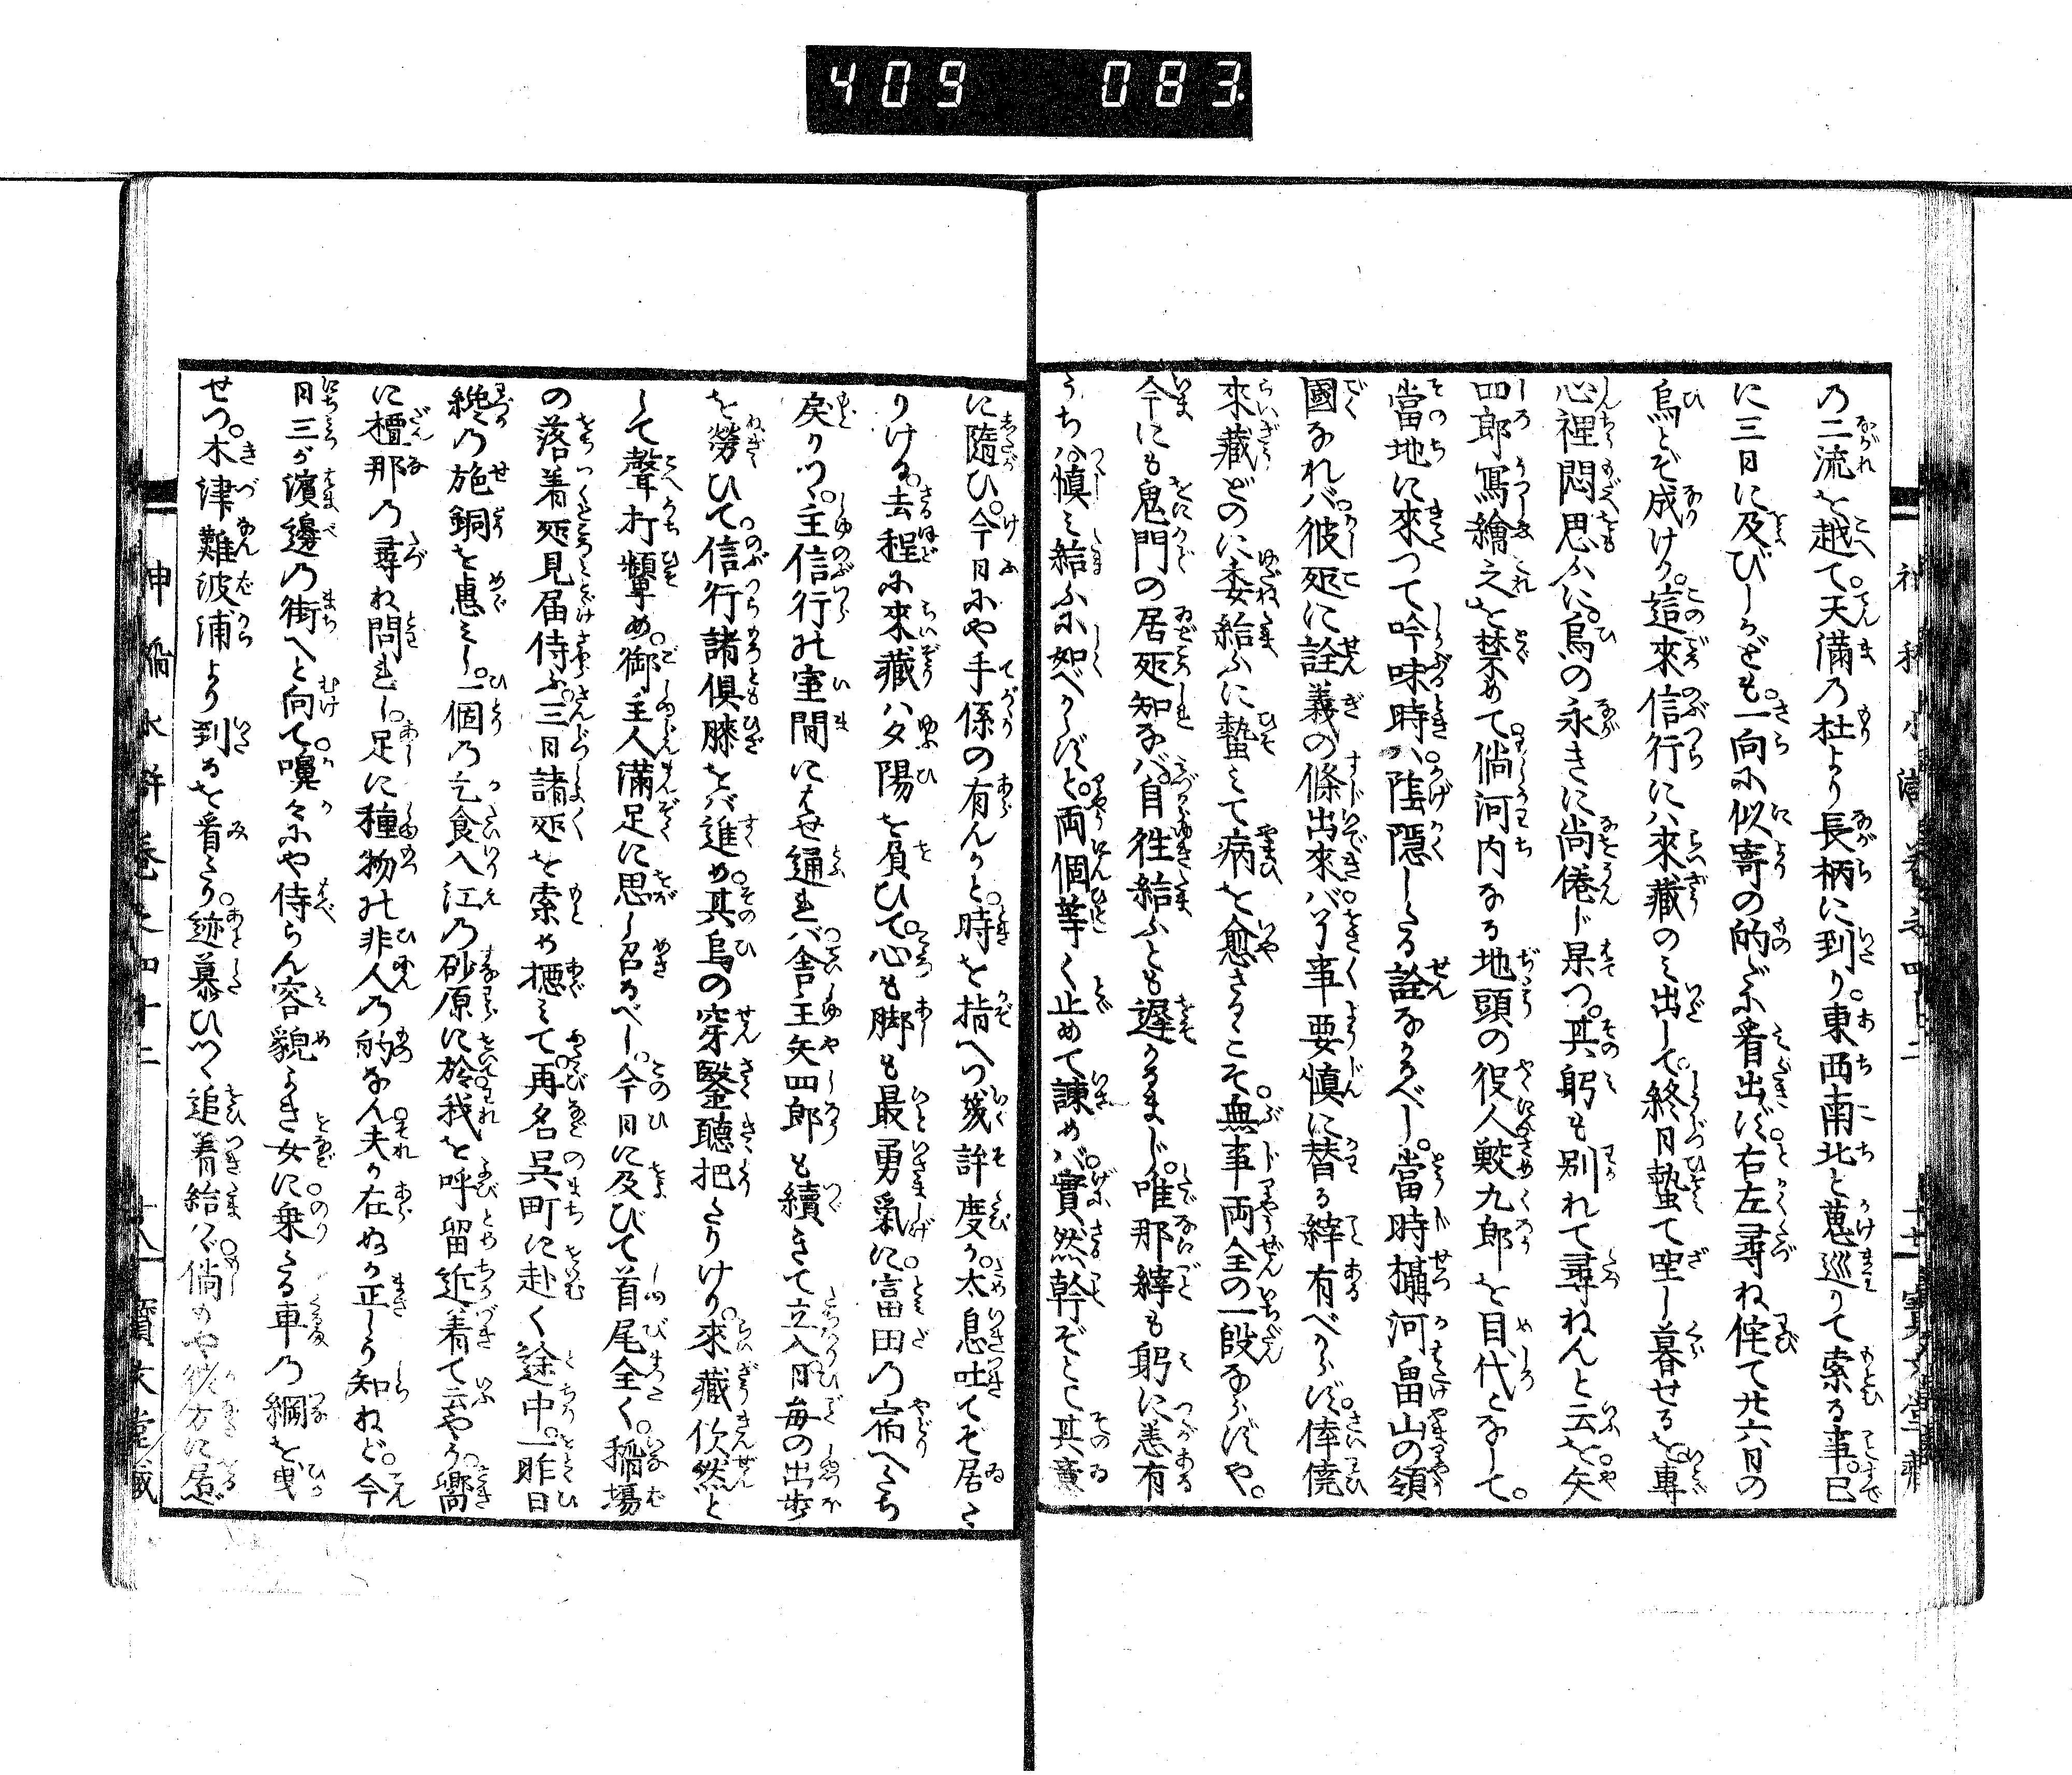 409 083
乃二流を越て。天満の杜より長柄に到り。東西南北と蒐巡りて索る事。已
に三日に及びしかども。一向に似寄の的だに看出ず。右左尋ね侘て廿六日の
烏とぞ成けり。這來信行には來藏のミ出して。終日蟄て坐し暮せるを。專
心裡悶思ふに。烏の永きに尚倦じ果つ。其躬も別れて尋ねんと云を。矢
四郎寫繪之を禁めて。倘河内なる地頭の役人鮫九郎を目代となして。
當地に來つて吟味時ハ。陰隱したる詮なかるべし。當時攝河畠山の領
國なれバ。彼処に詮義の條出來バ。事要愼に替る縡有べからず。倖僥
來藏どのに委給ふに。蟄ミて病を愈さるこそ。無事両全の一段ならずや。
今にも鬼門の居処知なバ。自徃給ふとも遅かるまじ。唯那縡も躬に恙有
うちハ愼ミ給ふに如べからずと。両個等く止めて諌めバ。實然幹ぞとて其意
に隨ひ。今日にや手係の有んかと。時を指へつ幾許度か。太息吐てぞ居た
りける。去程に來藏ハ夕陽を負ひて。心も脚も最勇氣に。富田の宿へたち
戻りつゝ。主信行の室間にはせ通れバ。舎主矢四郎も續きて立入。日毎の出歩
を勞ひて。信行諸倶膝をバ進め。其烏の穿鑿聽把たりけり。來藏欣然と
して聲打顰め。御主人滿足に思し召るべし。今日に及びて首尾全く。稲場
の落着処見届侍ふ。三日諸処を索め憊ミて。再名呉町に赴く途中。一昨日
纔の施銅を惠ミし。一個の乞食入江の砂原に於。我を呼留近着て云やう。嚮
に檀那の尋ね問れし。足に種物の非人の的なん。夫か在ぬか正しう知ねど。今
日三が濱邊の街へと向て。嚊々にや侍らん容貌よき女に。乗たる車の綱を曳
せつ。木津難波浦より到るを看たり。迹慕ひつゝ追着給バ。倘のや彼方に居
神稲水滸 巻之四十二 十八 寶文堂藏